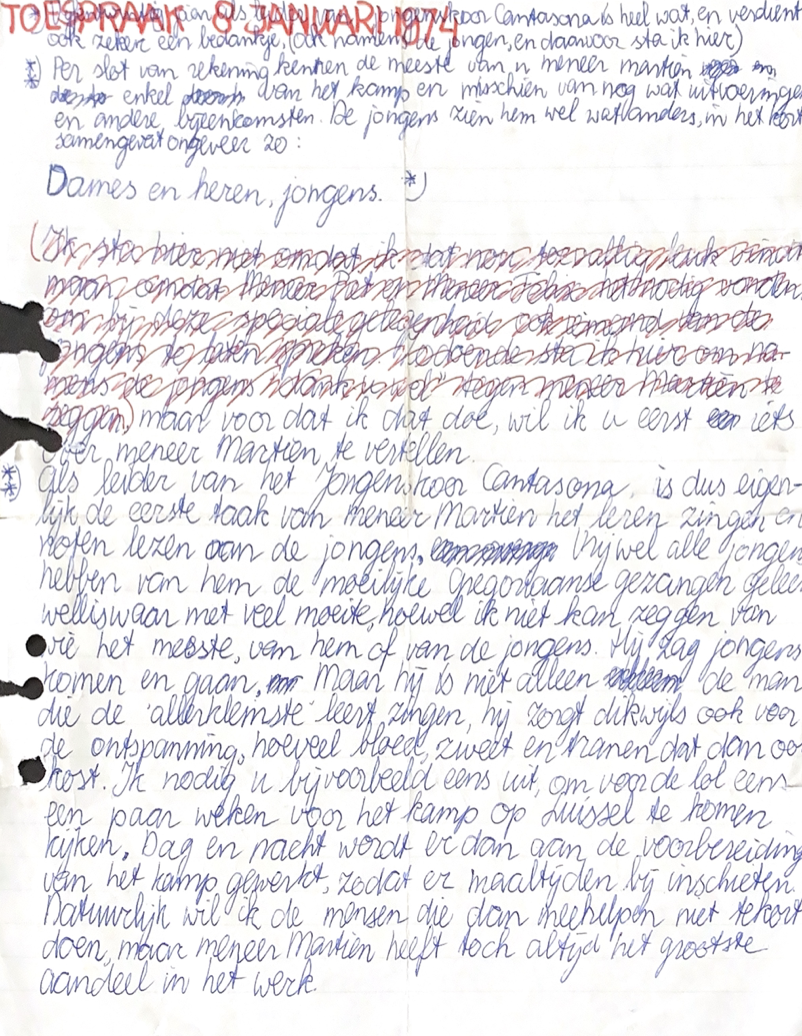 TOESPRAAK 8 JANUARI 1974
jongenskoor Cantasona is heel wat, en verdient
ook zeker een bedankje, (ook namens de jongen, en daarvoor sta ik hier)
* Per slot van rekening kennen de meeste van u meneer martien
* enkel van het kamp en misschien van nog wat uitvoeringen
en andere bijeenkomsten. De jongens zien hem wel wat anders, in het kort
samengevat ongeveer zo:
Dames en heren, jongens. *)
(Ik sta hier niet omdat ik dat nou toevallig leuk vind
maar omdat Meneer Piet en Meneer Felix het nodig vonden
om bij deze speciale gelegenheid ook iemand van de
jongens te laten spreken. sta ik hier om na-
mens de jongens dank u wel tegen meneer Martien te
zeggen) maar voor dat ik dat doe, wil ik u eerst iets
over meneer Martien te vertellen.
* Als leider van het Jongenskoor Cantasona, is dus eigen-
* lijk de eerste taak van meneer Martien het leren zingen en
noten lezen aan de jongens. Vrijwel alle jongens
hebben van hem de moeilijke Gregoriaanse gezangen geleer
welliswaar met veel moeite, hoewel ik niet kan zeggen van
wie het meeste, van hem of van de jongens. Hij zag jongens
komen en gaan, Maar hij is niet alleen de man
die de 'allerkleinste' leert zingen, hij zorgt dikwijls ook voor
de ontspanning, hoeveel bloed, zweet en tranen dat dan oo
kost. Ik nodig u bijvoorbeeld eens uit, om voor de lol eens
een paar weken voor het kamp op Luissel te komen
kijken. Dag en nacht wordt er dan aan de voorbereiding
van het kamp gewerkt, zodat er maaltijden bij inschieten.
Natuurlijk wil ik de mensen die dan meehelpen niet tekort
doen, maar meneer Martien heeft toch altijd het grootste
aandeel in het werk.